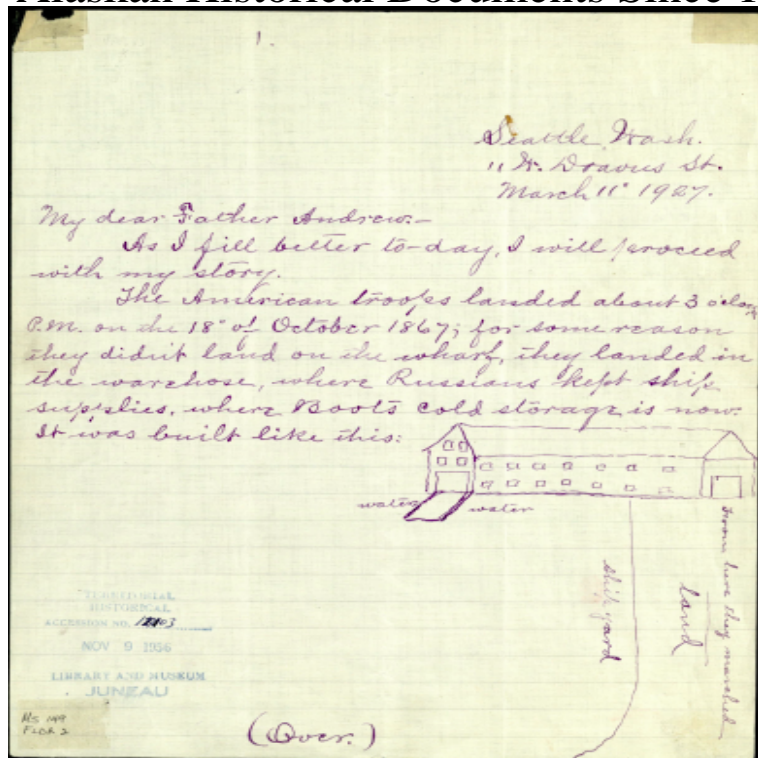 Alaskan Historical Documents Since 1
1.
Seattle, Wash.
11 W. Dravus St.
March 11" 1927.
My dear Father Andrew:-
As I fill better to-day, I will proceed
with my story.
The American troops landed about 3 o'clock
P.M. on the 18" of October 1867; for some reason
they didn't land on the wharf, they landed in
the warehose, where Russians kept ship
supplies, where Boots cold storage is now.
It was built like this:
water
water
ship yard
land
From here they marched
TERRITORIAL
HISTORICAL
ACCESSION NO.
NOV 9 1956
LIBRARY AND MUSEUM
JUNEAU
MS 149
FLDR 2
(Over.)